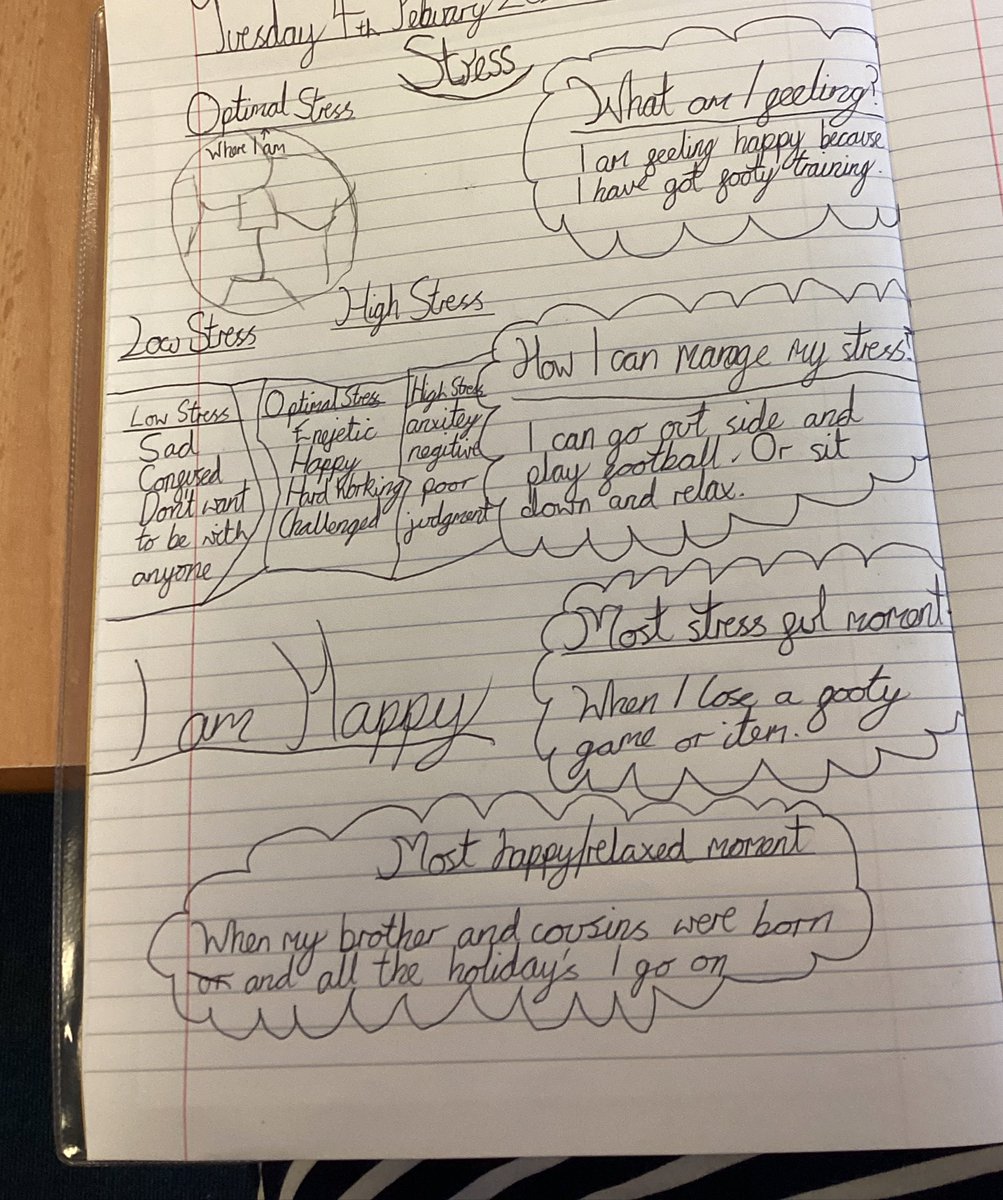 Tuesday 4th Febuary
Stress
Optimal Stress
Where I am
Low Stress
High Stress
What am I feeling?
I am feeling happy because
I have got footy training.
Low Stress
Sad
Confused
Don't want
to be with
anyone
Optimal Stress
Enejetic
Happy
Hard Working
Challenged
High Stress
anxitey
negitive
poor
judgment
How I can manage my stress?
I can go out side and
play football. Or sit
down and relax.
I am Happy
Most stress ful moment
When I lose a footy
game or item.
Most happy/relaxed moment
When my brother and cousins were born
or and all the holiday's I go on